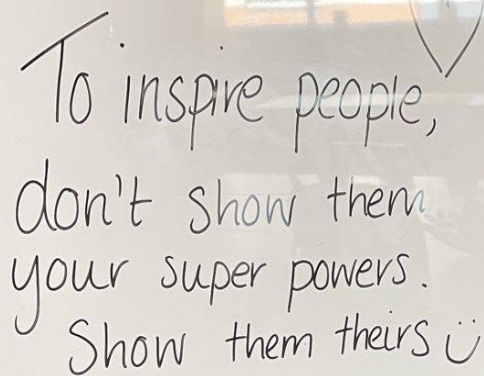 To inspire people,
don't show them
your super powers.
Show them theirs ü